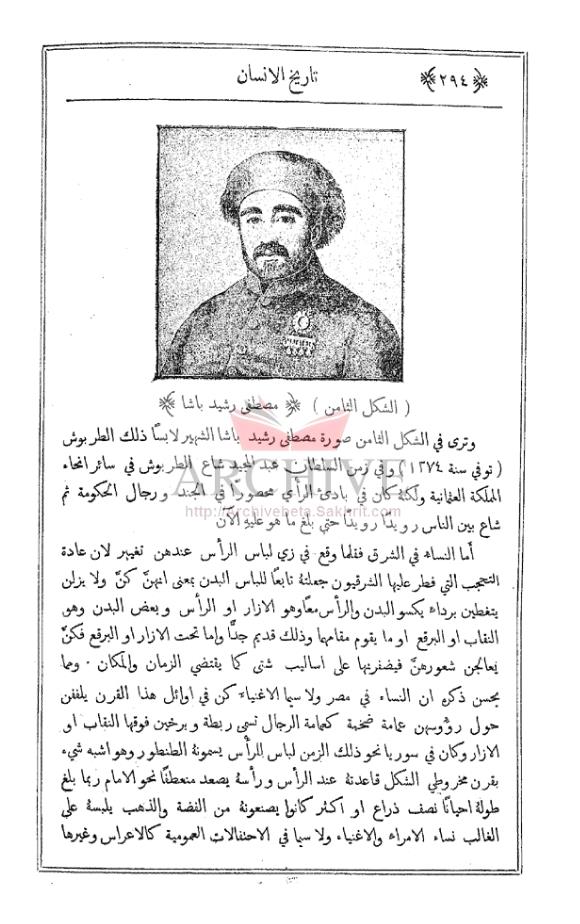 ﴿٢٩٤﴾ تاريخ الانسان
( الشكل الثامن ) ﴿ مصطفى رشيد باشا ﴾
وترى في الشكل الثامن صورة مصطفى رشيد باشا الشهير لابسًا ذلك الطربوش
( توفي سنة ١٢٧٤ ) وفي زمن السلطان عبد المجيد شاع الطربوش في سائر انحاء
المملكة العثمانية ولكنهُ كان في بادئ الرأي محصورًا في الجند ورجال الحكومة ثم
شاع بين الناس رويدًا رويدًا حتي بلغ ما هو عليهِ الآن
ARCHIVE
http://Archivebeta.Sakhrit.com
أما النساء في الشرق فقلما وقع في زي لباس الرأس عندهن تغيير لان عادة
التحجب التي فطر عليها الشرقيون جعلتهُ تابعًا للباس البدن بمعنى انهنّ كنّ ولا يزلن
يتغطين برداء يكسو البدن والرأس معًا وهو الازار او الرأس وبعض البدن وهو
النقاب او البرقع او ما يقوم مقامها وذلك قديم جدًّا واما تحت الازار او البرقع فكنّ
يعالجن شعورهنّ فيضفرنها على اساليب شتى كما يقتضي الزمان والمكان . ومما
يحسن ذكره ان النساء في مصر ولا سيما الاغنياء كن في اوائل هذا القرن يلففن
حول رؤوسهن عمامة ضخمة كعمامة الرجال تسمى ربطة ويرخين فوقها النقاب او
الازار وكان في سوريا نحو ذلك الزمن لباس للرأس يسمونهُ الطنطور وهو اشبه شيء
بقرن مخروطي الشكل قاعدتهُ عند الرأس ورأسهُ يصعد منعطفًا نحو الامام ربما بلغ
طولهُ احيانًا نصف ذراع او اكثر كانوا يصنعونهُ من الفضة والذهب يلبسهُ على
الغالب نساء الامراء والاغنياء ولا سيما في الاحتفالات العمومية كالاعراس وغيرها